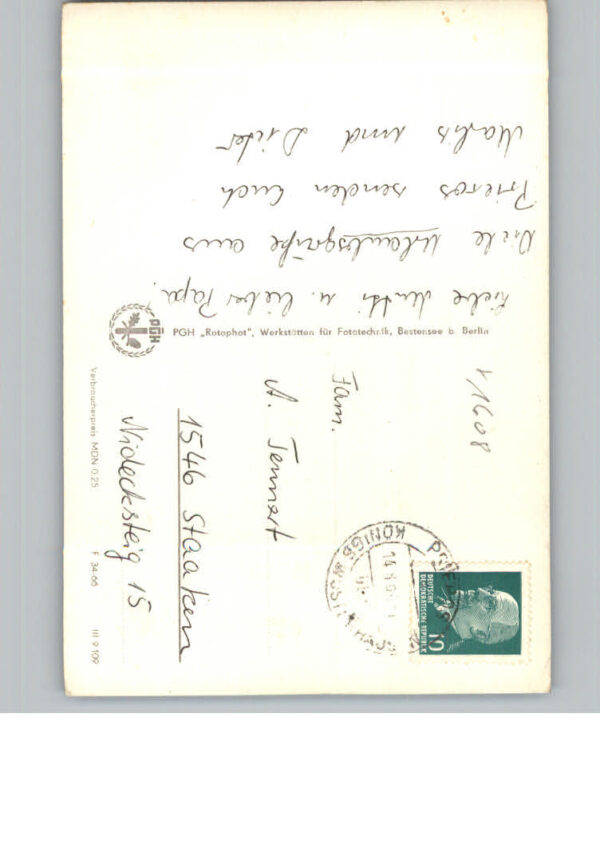 Liebe Mutti u. lieber Papa.
Viele Urlaubsgrüße aus
Prieros senden Euch
Marlis und Dieter
PGH
PGH „Rotophot“, Werkstätten für Fototechnik, Bestensee b. Berlin
11608
Fam.
A. Tennert
1546 Staaken
Nidecksteig 15
Verbraucherpreis MDN 0,25
F 34-66
III 9 109
DEUTSCHE
DEMOKRATISCHE REPUBLIK
10
PRIEROS